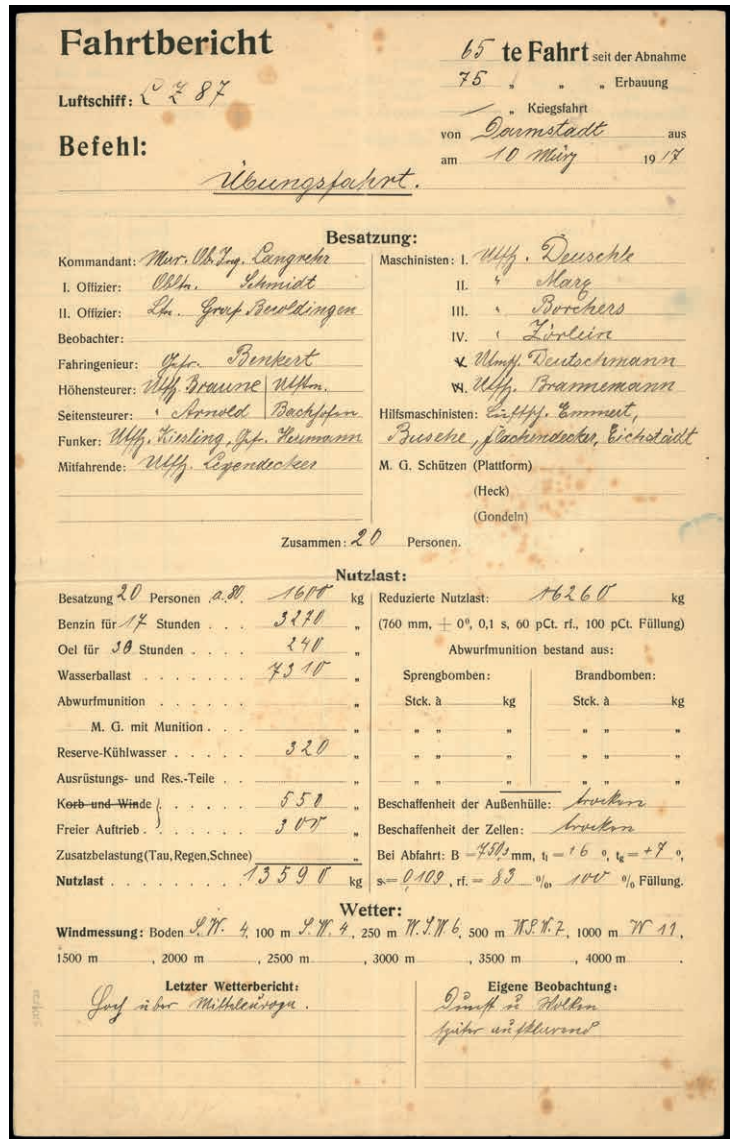 Fahrtbericht
65 te Fahrt seit der Abnahme
75 „ „ „ Erbauung
— „ Kriegsfahrt
Luftschiff: L Z 87
von Darmstadt aus
am 10 März 1917
Befehl:
Übungsfahrt.
Besatzung:
Kommandant: Mar. Ob. Ing. Langrehr
I. Offizier: Obltn. Schmidt
II. Offizier: Ltn. Graf Beroldingen
Beobachter:
Fahringenieur: Gefr. Benkert
Höhensteurer: Utffz. Braune
Seitensteurer: " Arnold Bachhofen
Funker: Utffz. Kiesling, Gefr. Heumann
Mitfahrende: Utffz. Legendecker
Maschinisten: I. Utffz. Deuschle
II. " Marg
III. " Borchers
IV. " Zörlein
V. Deutschmann
VI. Utffz. Brannemann
Hilfsmaschinisten: Luftsch. Emmert,
Busche, Flachendecker, Eichstädt
M. G. Schützen (Plattform)
(Heck)
(Gondeln)
Zusammen: 20 Personen.
Nutzlast:
Besatzung 20 Personen a. 80. 1600 kg
Benzin für 17 Stunden . . . 3270 „
Oel für 30 Stunden . . . 240 „
Wasserballast . . . . . . . 7310 „
Abwurfmunition . . . . . . „
M. G. mit Munition . . . „
Reserve-Kühlwasser . . . . . 320 „
Ausrüstungs- und Res.-Teile . . „
Korb und Winde . . . . . 550 „
Freier Auftrieb . . . . . . 300 „
Zusatzbelastung (Tau, Regen, Schnee) „
Nutzlast . . . . . . . . 13590 kg
Reduzierte Nutzlast: 16260 kg
(760 mm, ± 0°, 0,1 s, 60 pCt. rf., 100 pCt. Füllung)
Abwurfmunition bestand aus:
Sprengbomben: Brandbomben:
Stck. à kg Stck. à kg
„ „ „ „ „ „
„ „ „ „ „ „
„ „ „ „ „ „
Beschaffenheit der Außenhülle: trocken
Beschaffenheit der Zellen: trocken
Bei Abfahrt: B = 750,5 mm, tl = +6 °, tg = +7 °,
s = 0,109, rf. = 83 %, 100 % Füllung.
Wetter:
Windmessung: Boden S.W. 4, 100 m S.W. 4, 250 m W.S.W. 6, 500 m W.S.W. 7, 1000 m W 11,
1500 m , 2000 m , 2500 m , 3000 m , 3500 m , 4000 m .
Letzter Wetterbericht:
Hoch über Mitteleuropa.
Eigene Beobachtung:
Dunst u Wolken
später aufklarend